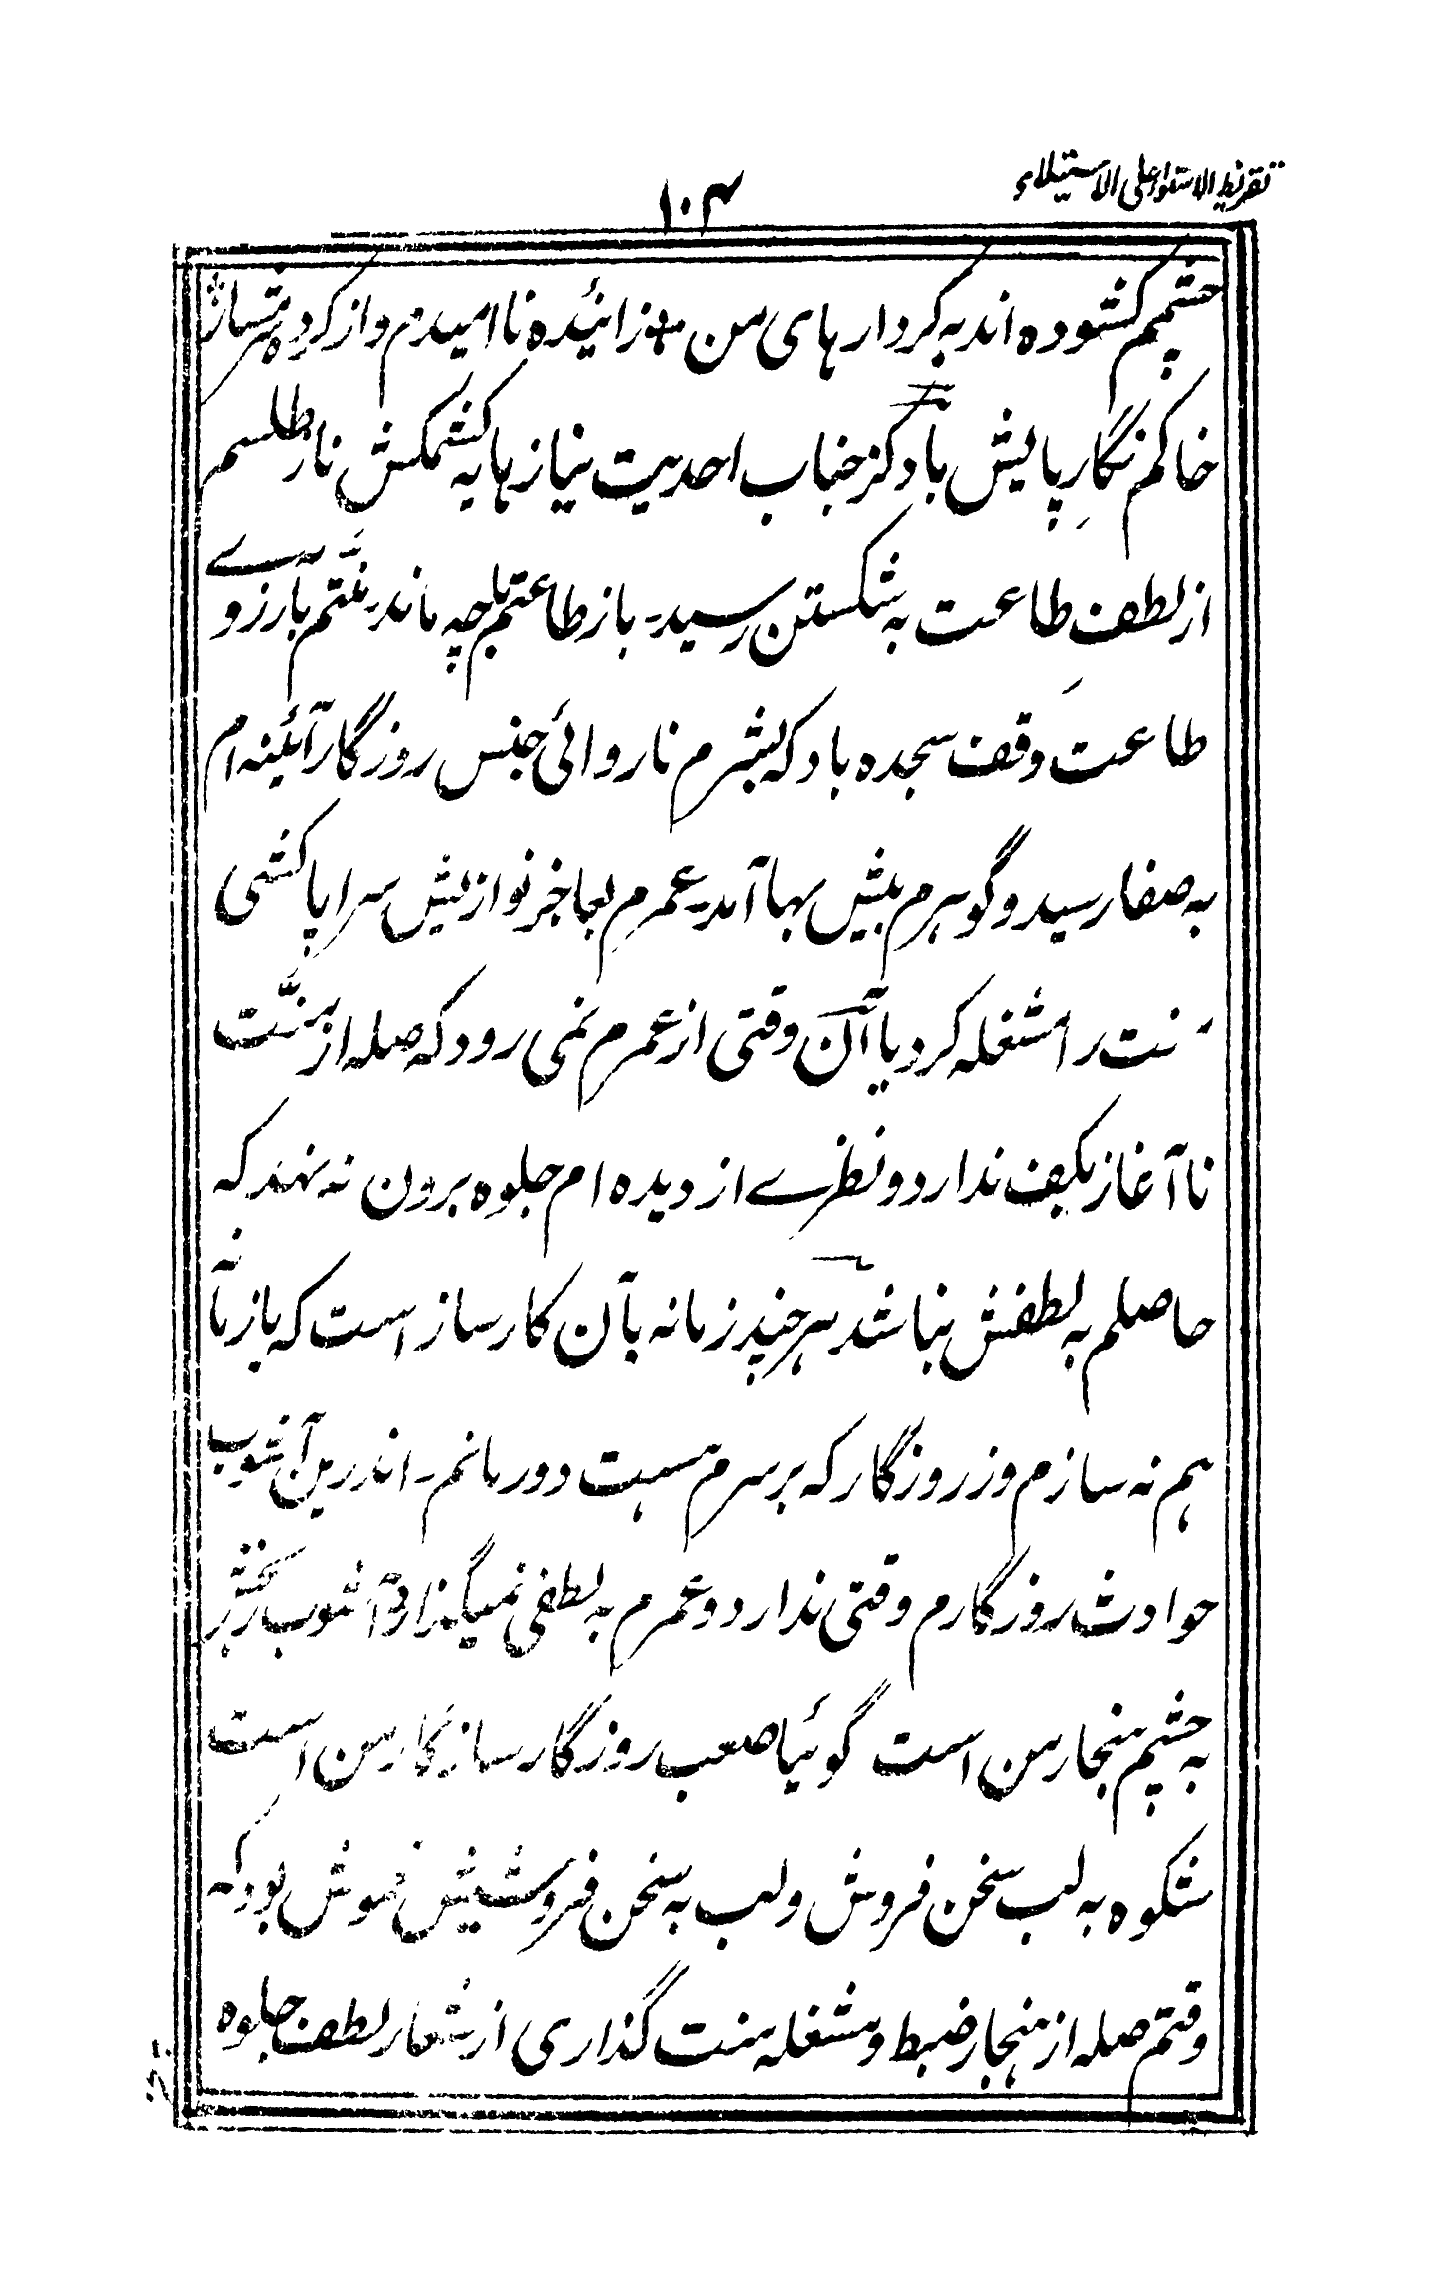 تقریظ الاستواء علی الاستیلاء
۱۰۴
چشم کشوده اند به کردارهای من هنوز زائیده ناامیدم و از کرده
خاکم نگارِ پایش باد کز جناب احدیت نیازها به کشمکش ناز طلسم
از لطف طاعت به شکستن رسید۔ باز طاعتم چه ماند۔ بآرزوے
طاعت وقف سجده باد که بشرم ناروائی جنس روزگار آئینه ام
به صفا رسید و گوهرم بیش بها آمد۔ عمرم بعاجز نوازیش سراپا کشی
منت را مشغله کرد یا آن وقتی از عمرم نمی رود که صله از منّت
نا آغاز بکف ندارد و نظرے از دیده ام جلوه برون نه نهد که
حاصلم به لطفش نباشد هر چند زمانه بآن کارساز است که باز بآنه
هم نه سازم وز روزگار که بر سرم هست دور مانم۔ اندرین آشوب
حوادث روزگارم وقتی ندارد و عمرم به لطفی نمیگذارد آشوب
به چشم هنجار من است گوئیا صعب روزگار سازگار من است
شکوه به لب سخن فروش ولب به سخن فروشیش خموش بود که
وقتم صله از هنجار ضبط و مشغله منت گذاری از شعار لطف جلوه